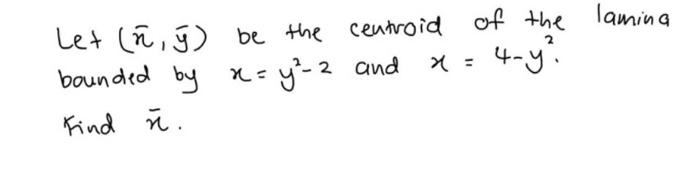 Let (x̄, ȳ) be the centroid of the lamina
bounded by x = y²-2 and x = 4-y².
Find x̄.